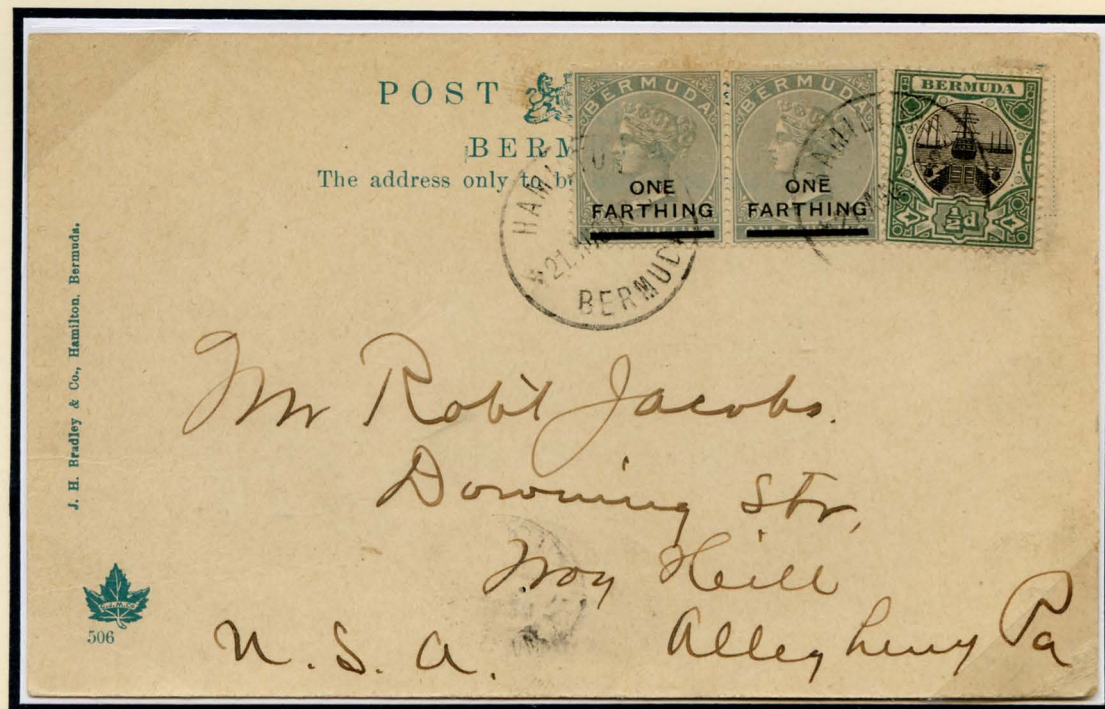 POST
BERM
The address only to be
BERMUDA
ONE
FARTHING
BERMUDA
ONE
FARTHING
BERMUDA
½d
HAMILTON
21
BERMUDA
HAMIL
J. H. Bradley & Co., Hamilton, Bermuda.
Mr Robt Jacobs.
Downing Str,
Troy Heill
Allegheny Pa
U. S. A.
506